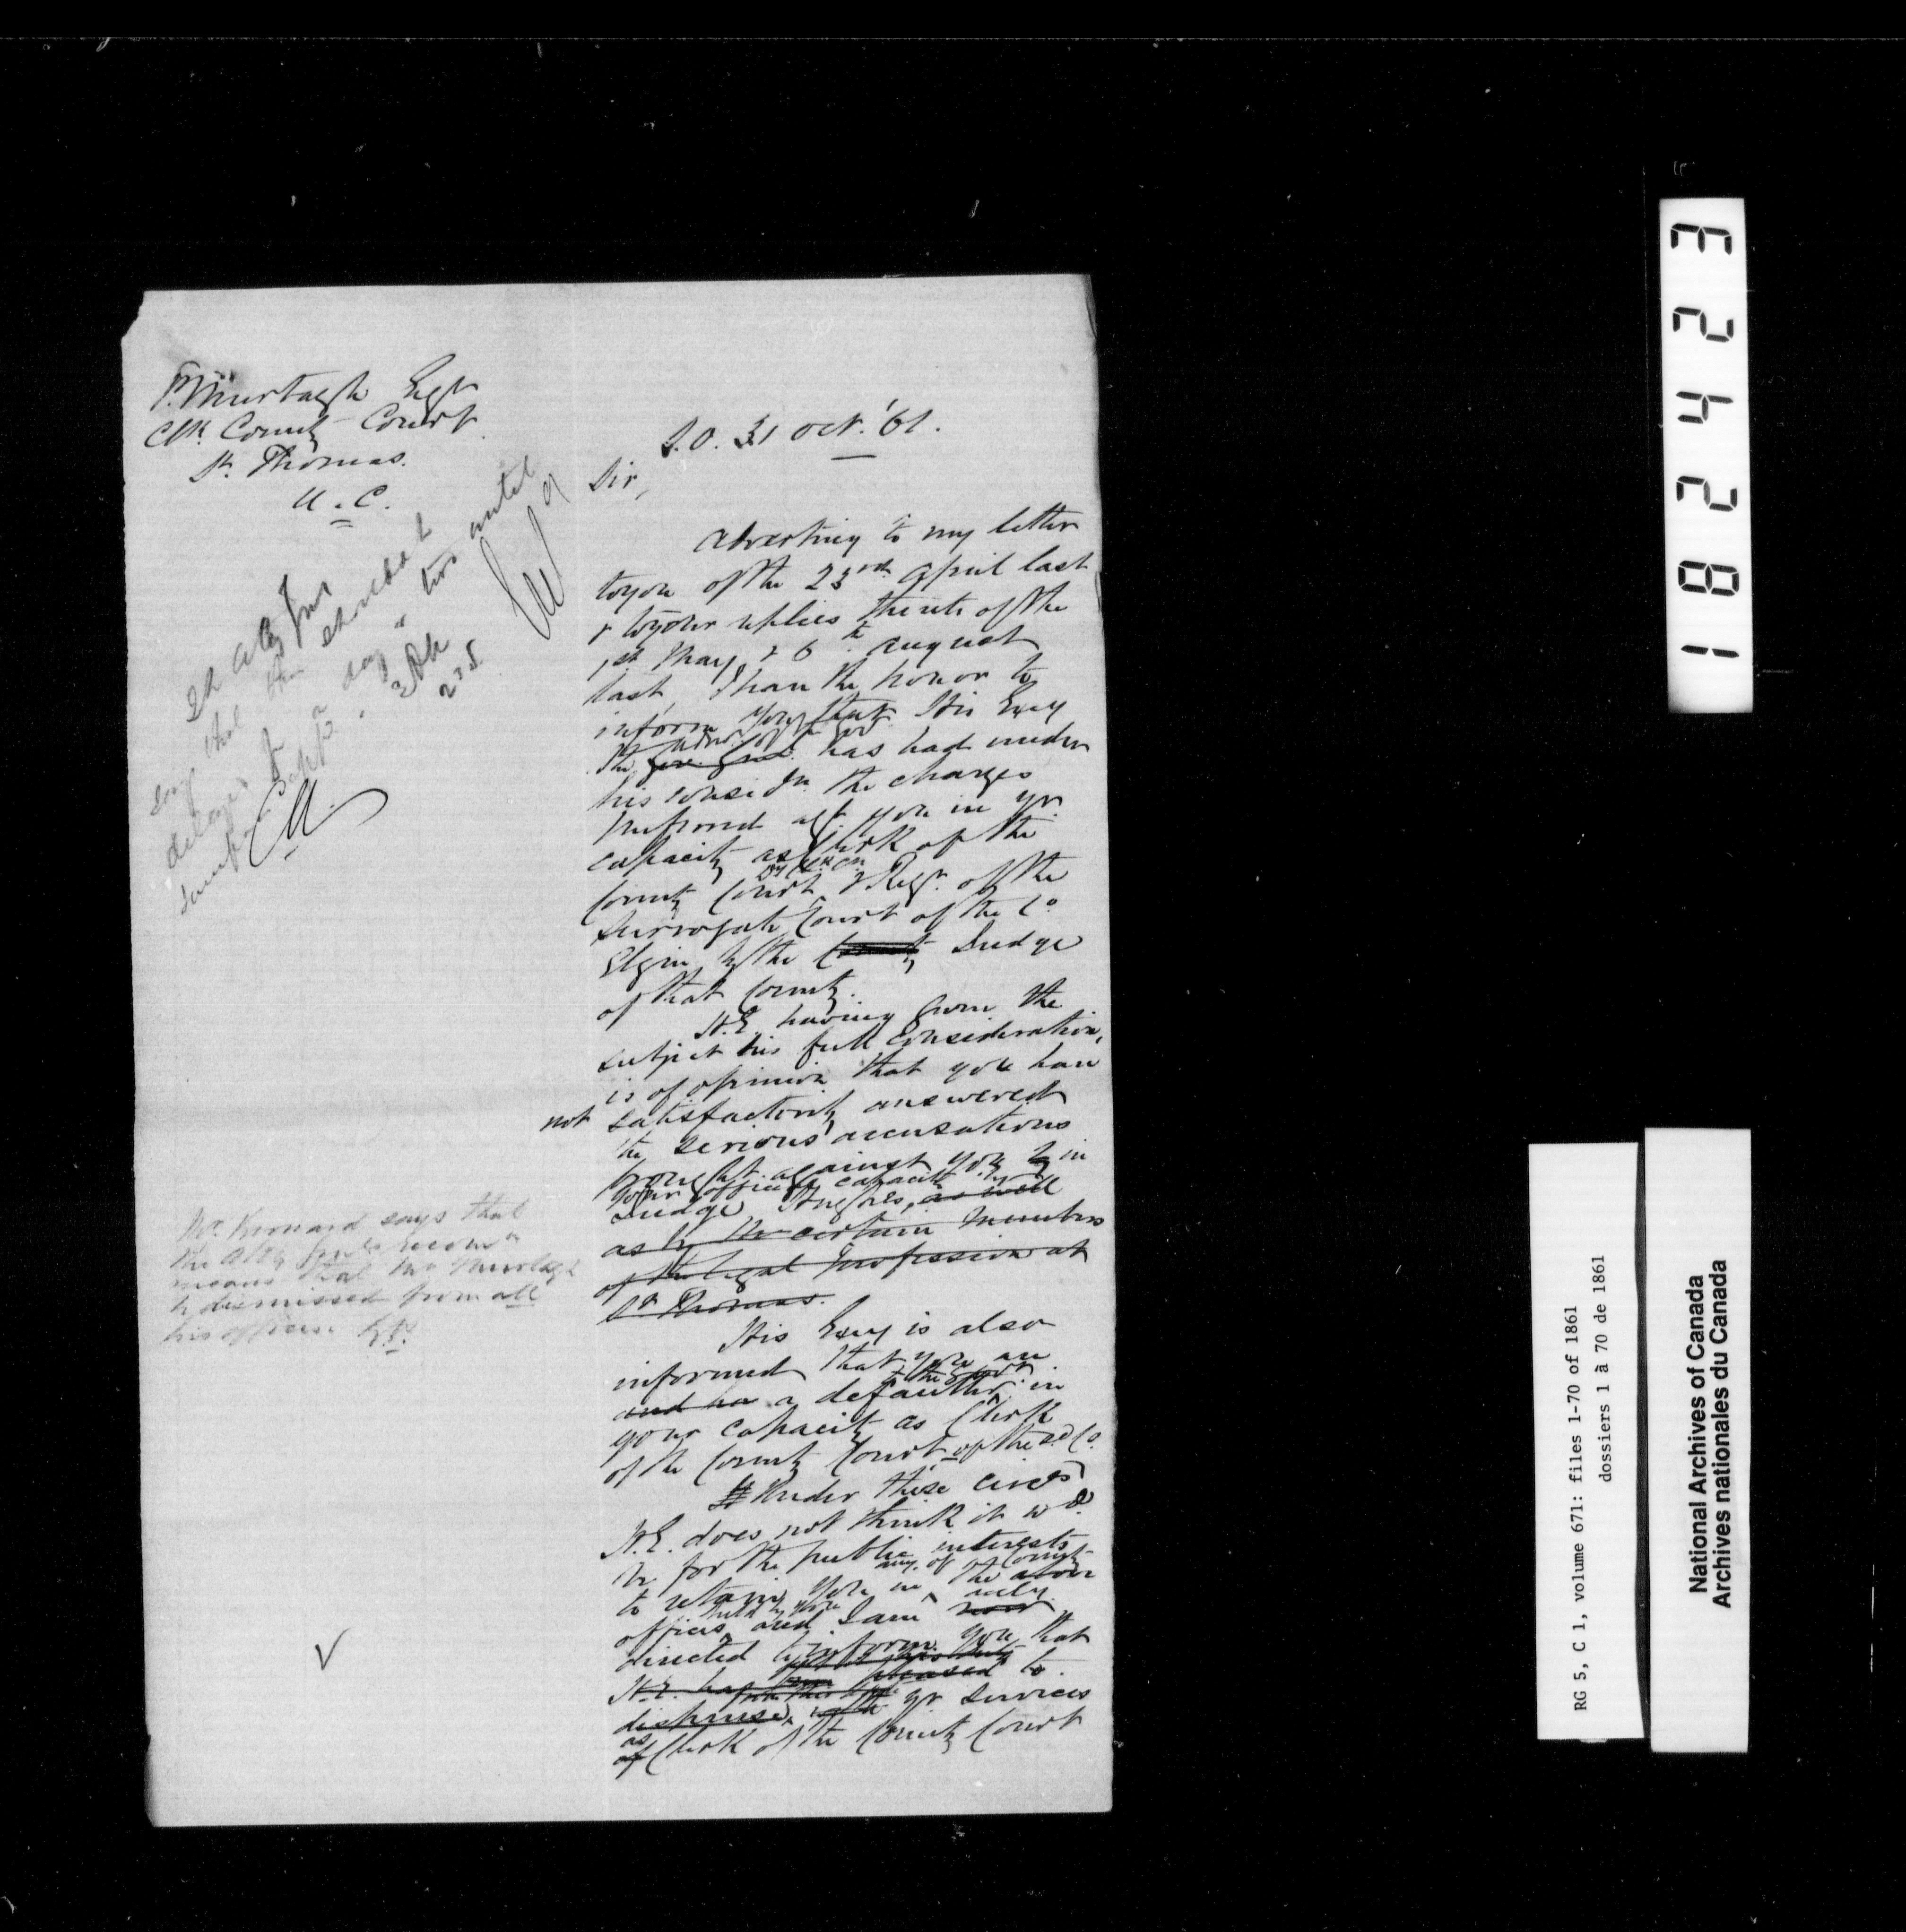 P. Murtagh Esqr
Clk County Court
St. Thomas.
U.C.
S.O. 31 Oct. '61.
Sir,
Adverting to my letter
to you of the 23rd April last
& to your replies thereto of the
1st May, & 6th August
last, I have the honor to
inform you that His Excy
the Admr of the Govt
the Gov. Genl. has had under
his considn. the charges
preferred agt you in yr
capacity as Clerk of the
County Court, & Regr. of the
Surrogate Court of the Co.
Elgin by the County Judge
of that County.
H.E. having given the
subject his full consideration,
is of opinion that you have
not satisfactorily answered
the serious accusations
brought against you by in
your official capacity by
Judge Hughes, as well
as by the certain members
of the legal profession at
St Thomas.
His Excy is also
informed that you are
to the Govt.
and are a defaulter in
your capacity as Clerk
of the County Court of the sd Co.
Under these circes
H.E. does not think it wd.
be for the public interests
any of County
to retain you in the above
held by you
offices and I am now
directed to inform you that
H.E. has been pleased to
dispense with yr services
as
of Clerk of the County Court
says that the
delayed for a day or two until
Mr. Bernard says that
the Atty Genls recomn
means that Mr Murtagh
be dismissed from all
his offices.
182423
RG 5, C 1, volume 671: files 1-70 of 1861
dossiers 1 à 70 de 1861
National Archives of Canada
Archives nationales du Canada